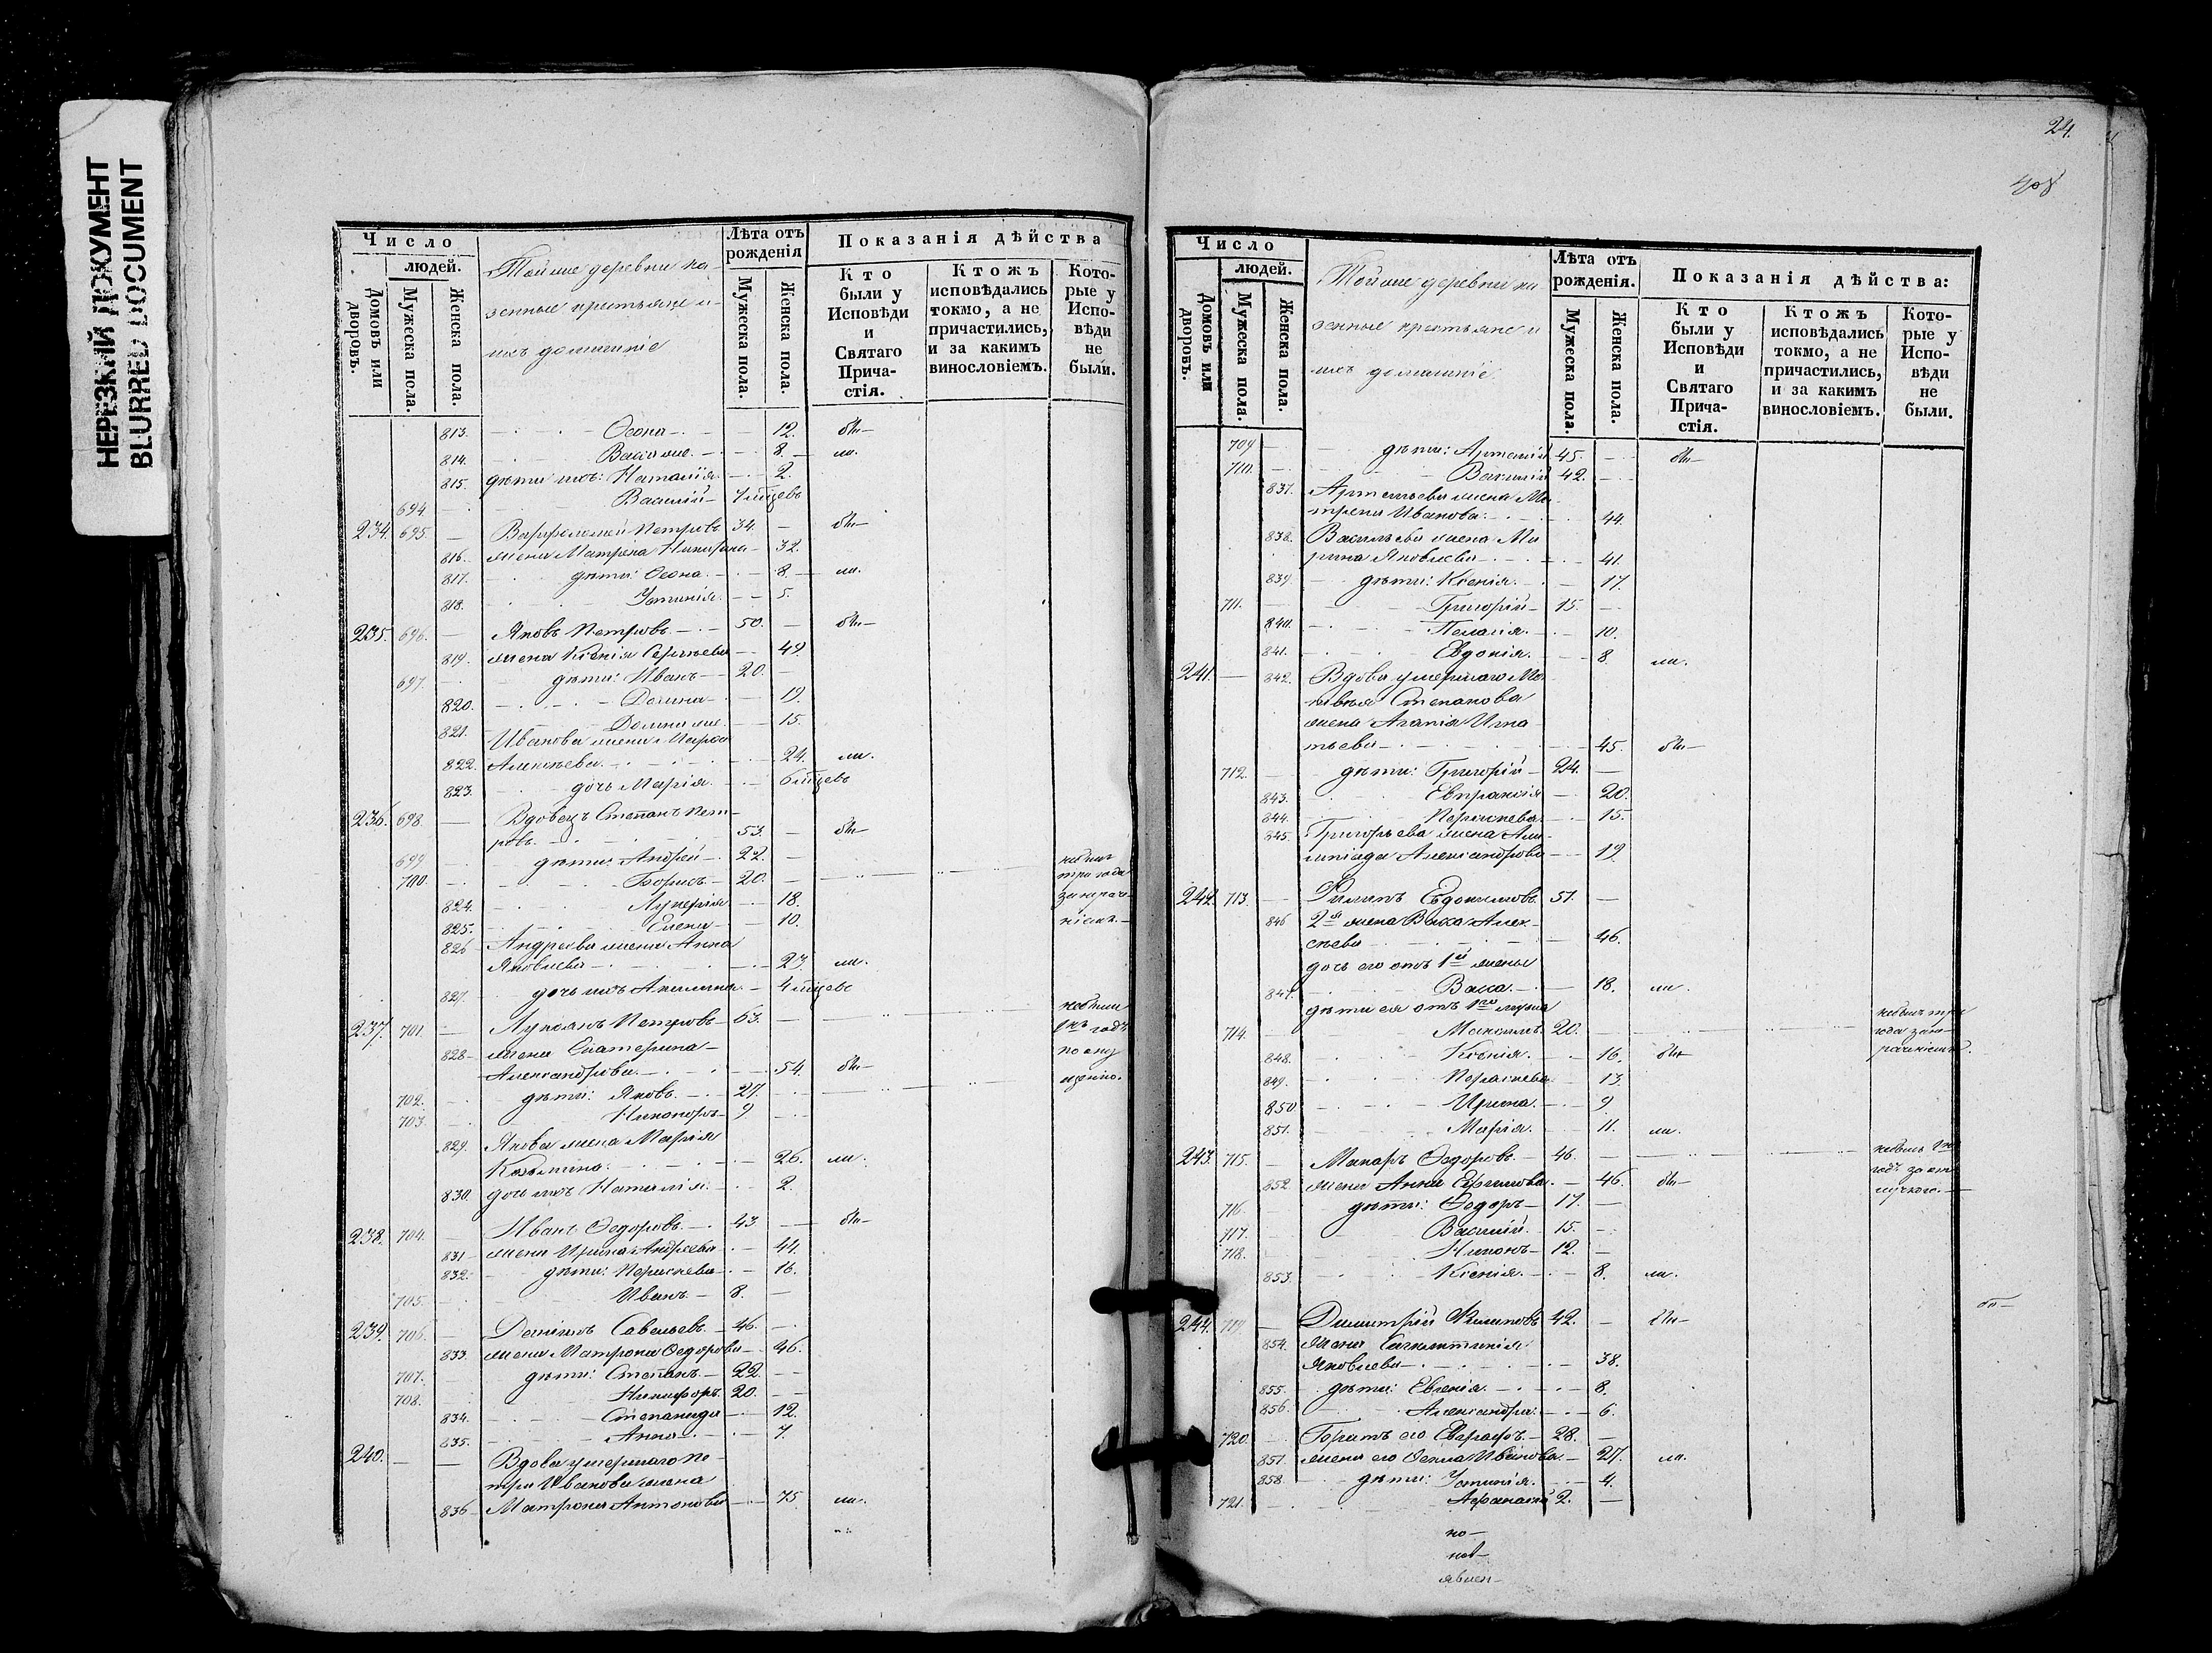 НЕРЕЗКИЙ ДОКУМЕНТ
BLURRED DOCUMENT
Число
людей.
Домовъ или дворовъ.
Мужеска пола.
Женска пола.
Тойже деревни ка-
зенные крестьяне и
ихъ домашніе
Лѣта отъ рожденія
Мужеска пола.
Женска пола.
Показанія дѣйства
Кто были у Исповѣди и Святаго Прича-стія.
Ктожъ исповѣдались токмо, а не причастились, и за какимъ винословіемъ.
Кото-рые у Испо-вѣди не были.
813. Ѳеона 12.
814. 8.
815. дѣти ихъ: Наталія 2.
694. Василій
234. 695. Варѳоломей Петровъ 34.
816. жена Матрона 32.
817. дѣти: Ѳеона 8.
818. Устинія 5.
235. 696. Яковъ Петровъ 50.
819. жена Ксенія Сергѣева 49
697. дѣти: Иванъ 20.
820. Домна 19.
821. Домна же 15.
Иванова жена Марѳа
822. Алексѣева 24.
823. дочь Марія
236. 698. Вдовецъ Степанъ Пет-
ровъ 53.
699 дѣти: Андрей 22.
700. Борисъ 20.
824. Лукерія 18.
825. Елена 10.
826 Андреева жена Анна
Яковлева 23.
827. дочь ихъ Акилина
237. 701. Лукіанъ Петровъ 63.
828 жена Екатерина
Александрова 54.
702. дѣти: Яковъ 27.
703. Никаноръ 9
829. Якова жена Марія
Козьмина 26.
830. дочь ихъ Наталія 2.
238. 704. Иванъ Ѳедоровъ 43
831 жена Ирина Андреева 44.
832. дѣти: Параскева 16.
705. Иванъ 8.
239. 706. Даніилъ Савельевъ 46.
833. жена Матрона Ѳедорова 46.
707. дѣти: Степанъ 22.
708. Никифоръ 20.
834. Степанида 12.
835. Анна 7
240. Вдова умершаго Пе-
тра Иванова жена
836 Матрона Антонова 75
24.
408
Число
людей.
Домовъ или дворовъ.
Мужеска пола.
Женска пола.
Тойже деревни ка-
зенные крестьяне и
ихъ домашніе.
Лѣта отъ рожденія.
Мужеска пола.
Женска пола.
Показанія дѣйства:
Кто были у Исповѣди и Святаго Прича-стія.
Ктожъ исповѣдались токмо, а не причастились, и за какимъ винословіемъ.
Кото-рые у Испо-вѣди не были.
709 дѣти: Артемій 45.
710. Василій 42.
837. Артемьева жена Ма-
трона Иванова 44.
838. Васильева жена Ма-
рина Яковлева 41.
839 дѣти: Ксенія 17.
711. Григорій 15.
840. Пелагія 10.
841. Евдокія 8.
241. 842. Вдова умершаго Ма-
твѣя Степанова
жена Агапія Игна-
тьева 45.
712. дѣти: Григорій 24.
843. Евпраксія 20.
844. Параскева 15.
845. Григорьева жена Али-
мпіада Александрова 19
242. 713. Филипъ Евдокимовъ 51.
846 2я жена Васса Алек-
сѣева 46.
дочь его отъ 1й жены
847. Васса 18.
дѣти ея отъ 1го мужа
714. Максимъ 20.
848. Ксенія 16.
849. Параскева 13.
850 Ирина 9
851. Марія 11.
243. 715. Макаръ Ѳедоровъ 46.
852 жена Анна Ефимова 46.
716. дѣти: Ѳедоръ 17.
717. Василій 15.
718. Никонъ 12.
853. Ксенія 8.
244. 719 Димитрій Филиповъ 42.
854. жена Сагклитикія
Яковлева 38.
855. дѣти: Евгенія 8.
856. Александра 6.
720. Братъ его Евграфъ 28.
857. жена его Ѳекла Иванова 27.
858. дѣти: Устинія 4.
721. Аѳанасій 2.